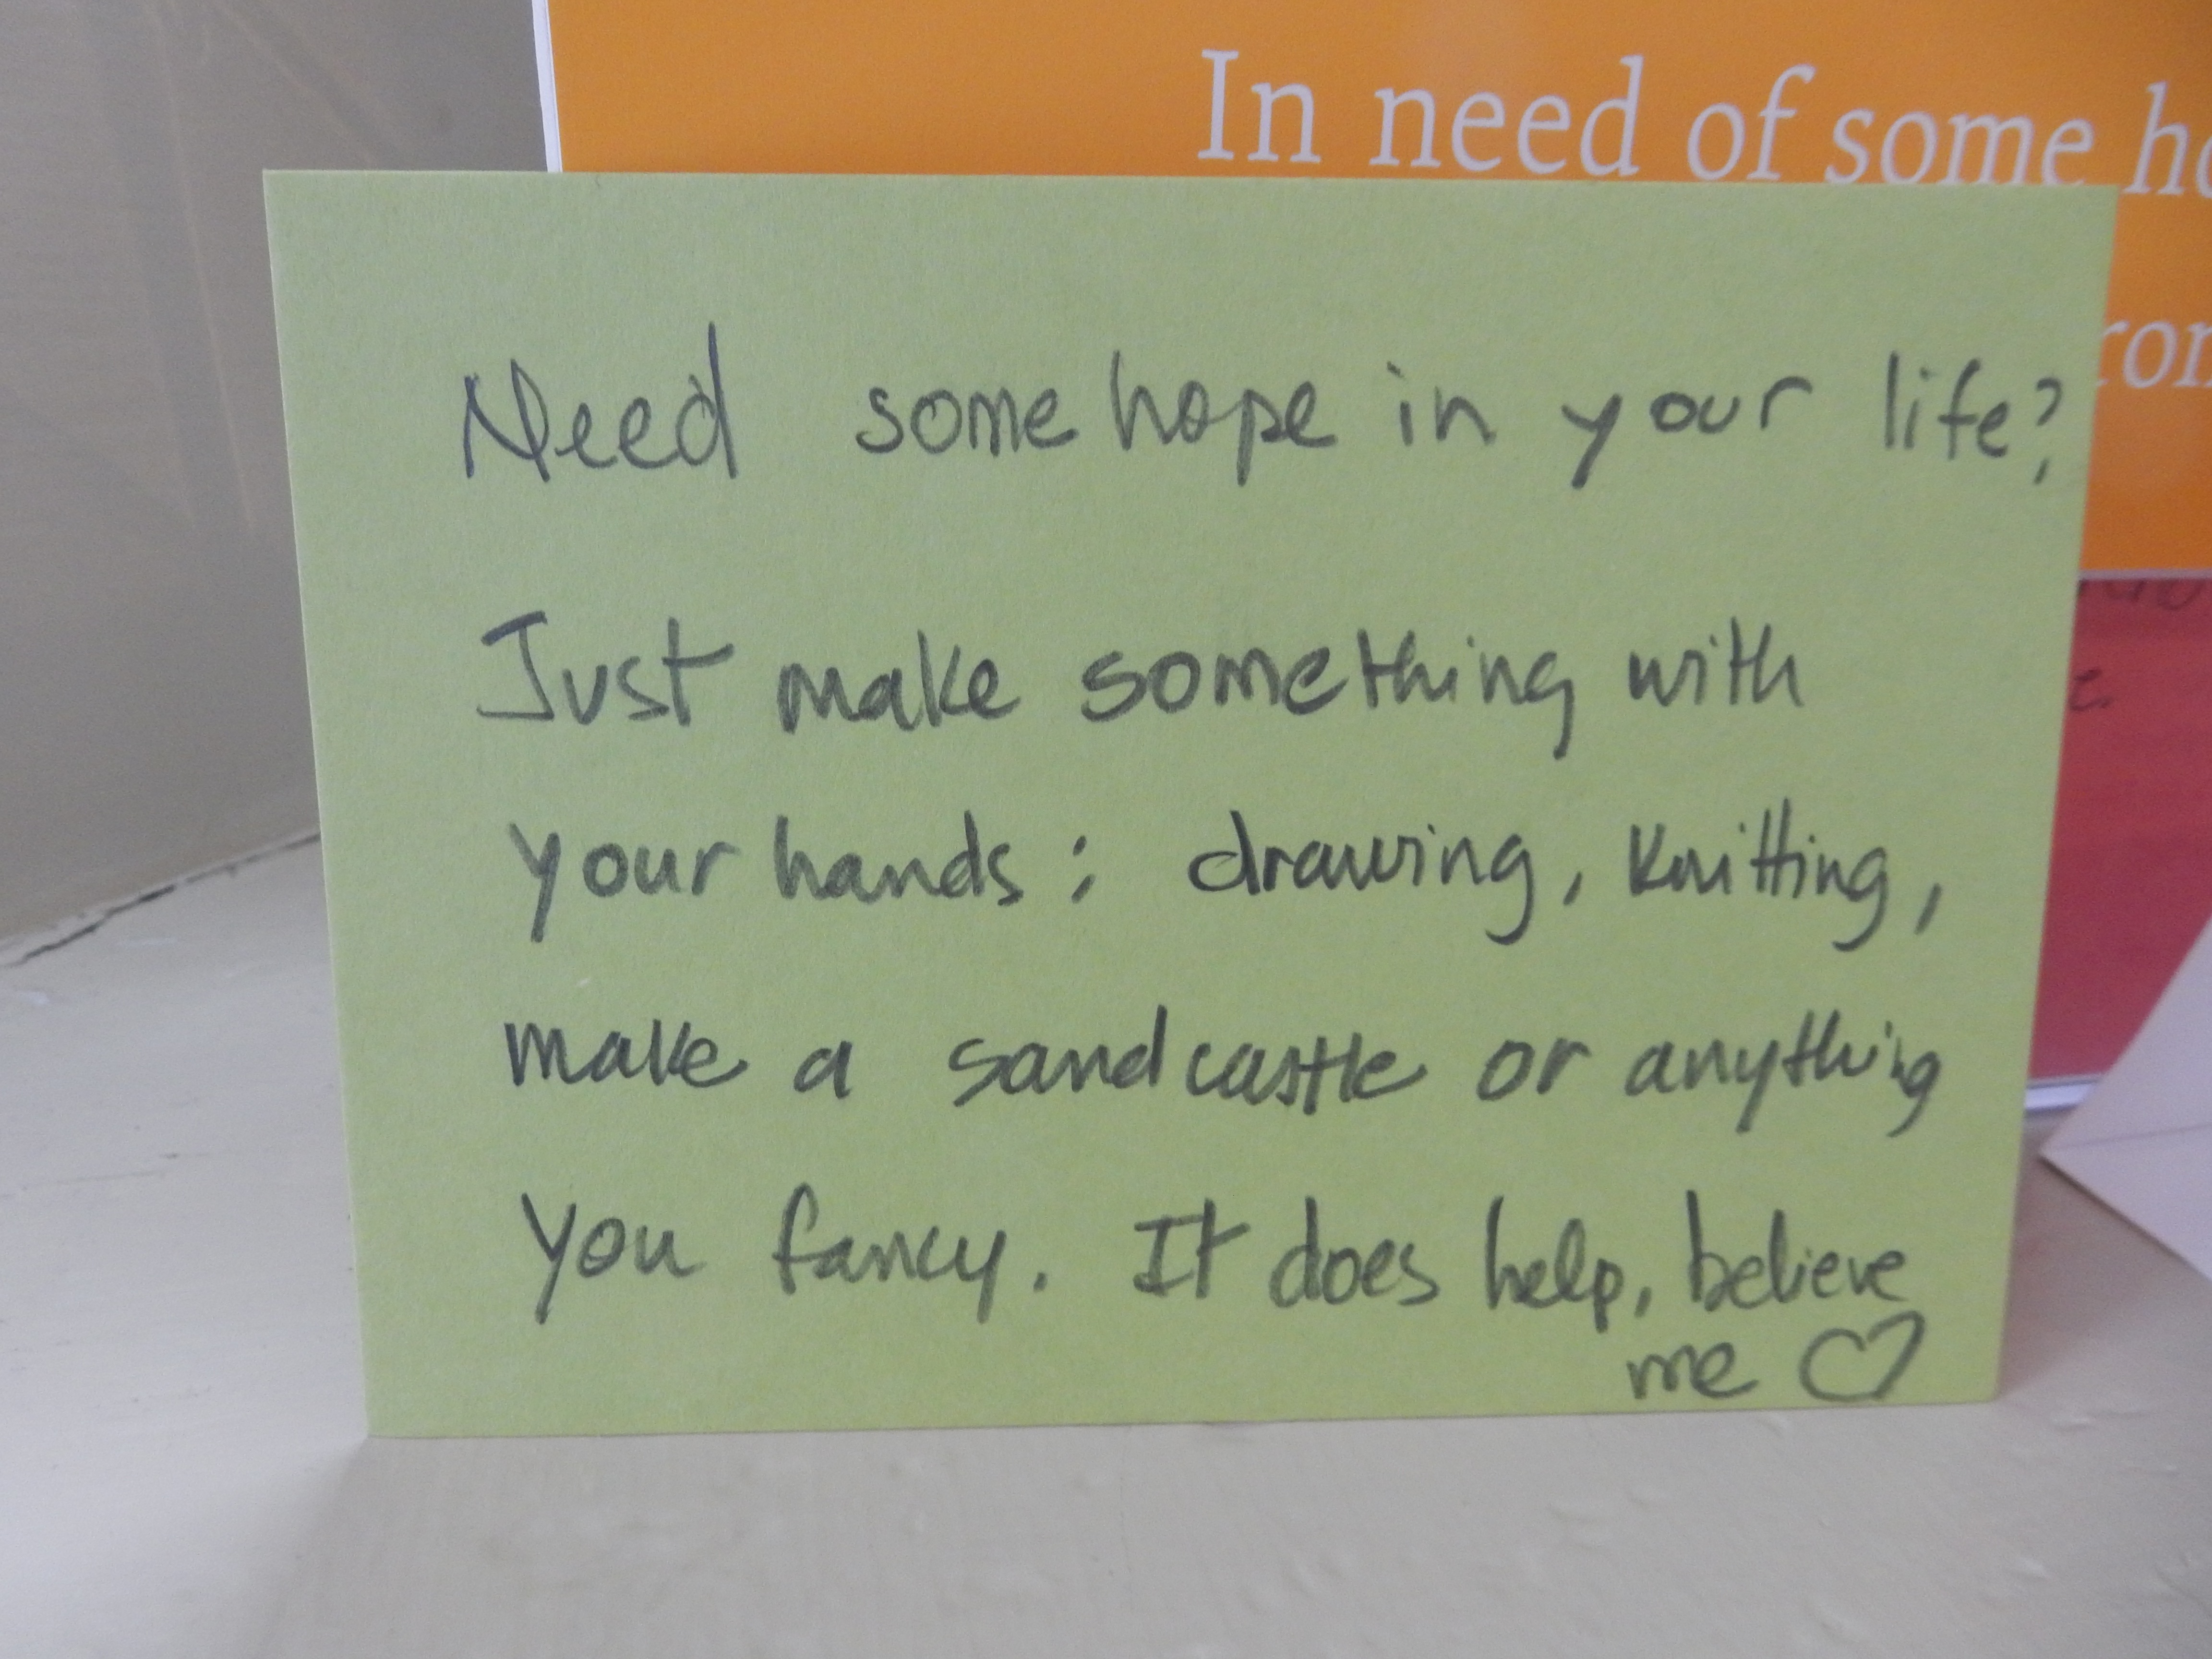 In need of some
Need some hope in your life?
Just make something with
your hands: drawing, knitting,
make a sandcastle or anything
you fancy. It does help, believe
me ♡